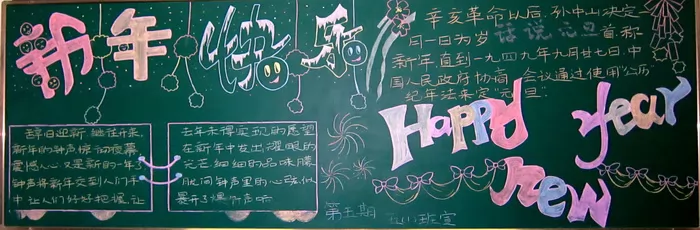 新年快乐
辞旧迎新,继往开来,
新年的钟声惊动夜幕
震撼人心 又是新的一年了
钟声将新年交到人们手
中 让人们好好把握,让
去年未得实现的愿望
在新年中发出耀眼的
光芒 细细的品味朦
胧间钟声里的心弦似
是开了爆竹声响
辛亥革命以后,孙中山决定
一月一日为岁 话说元旦 首 称
新年,直到一九四九年九月廿七日,中
国人民政府协商 会议通过使用"公历
纪年法来定"元旦"
Happy year
new
第五期 五(1)班宣